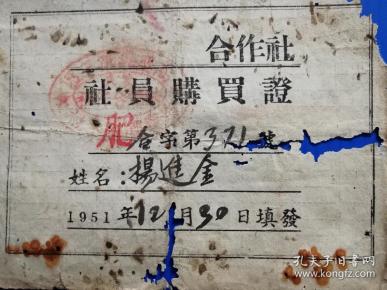 合作社
社員購買證
肥 合字第371號
姓名：楊進金
1951年12月30日填發
孔夫子旧书网